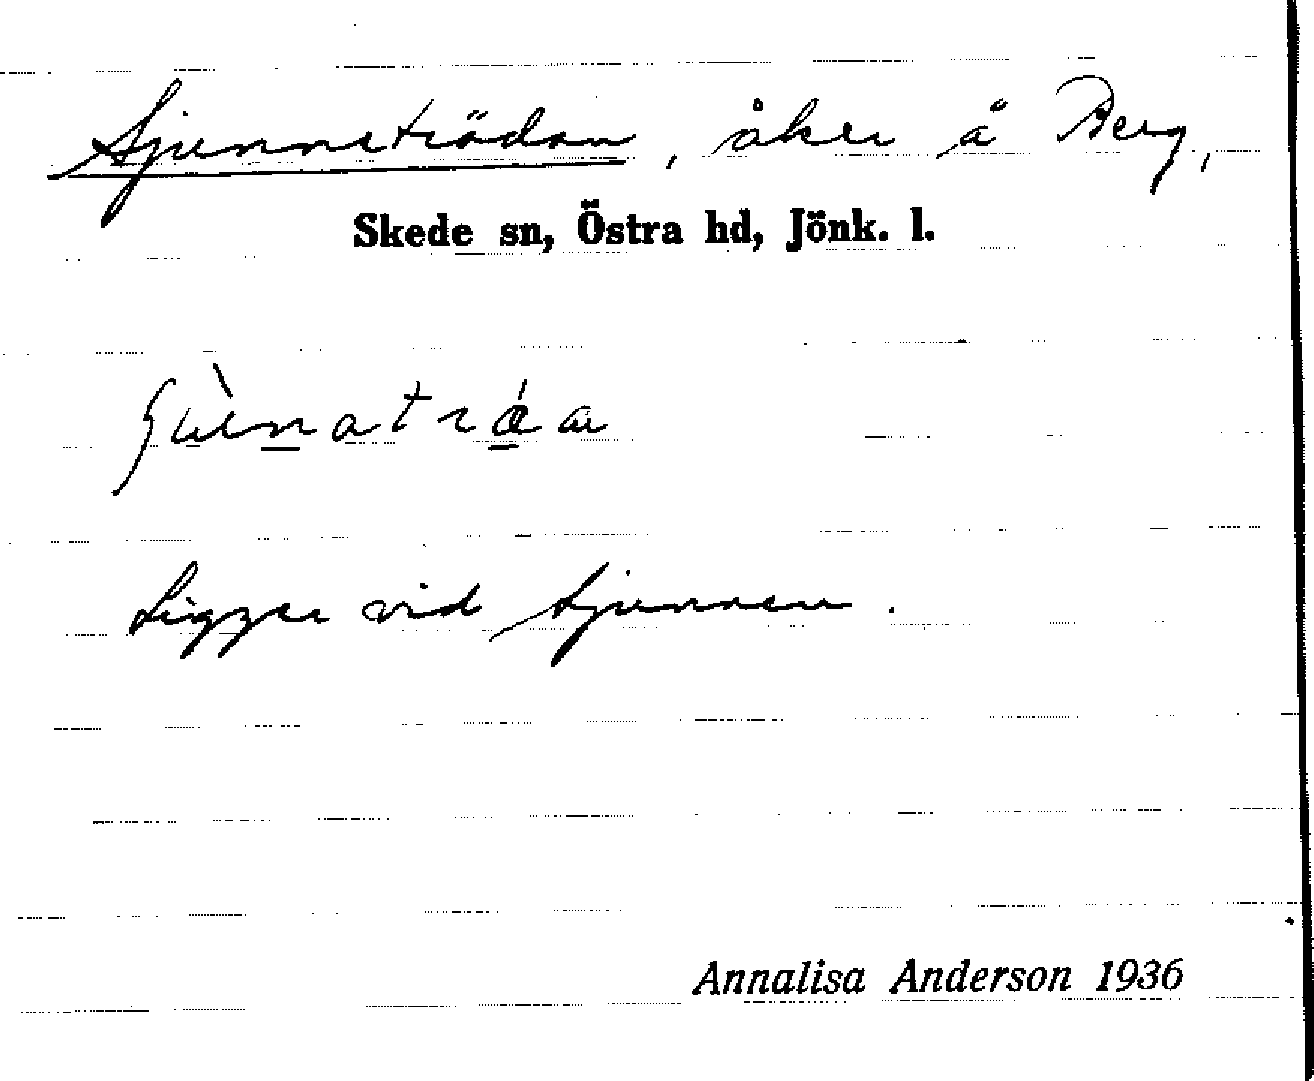 Sjunnaträdan, åker å Berg,
Skede sn, Östra hd, Jönk. l.
Ligger vid Sjunnen.
Annalisa Anderson 1936